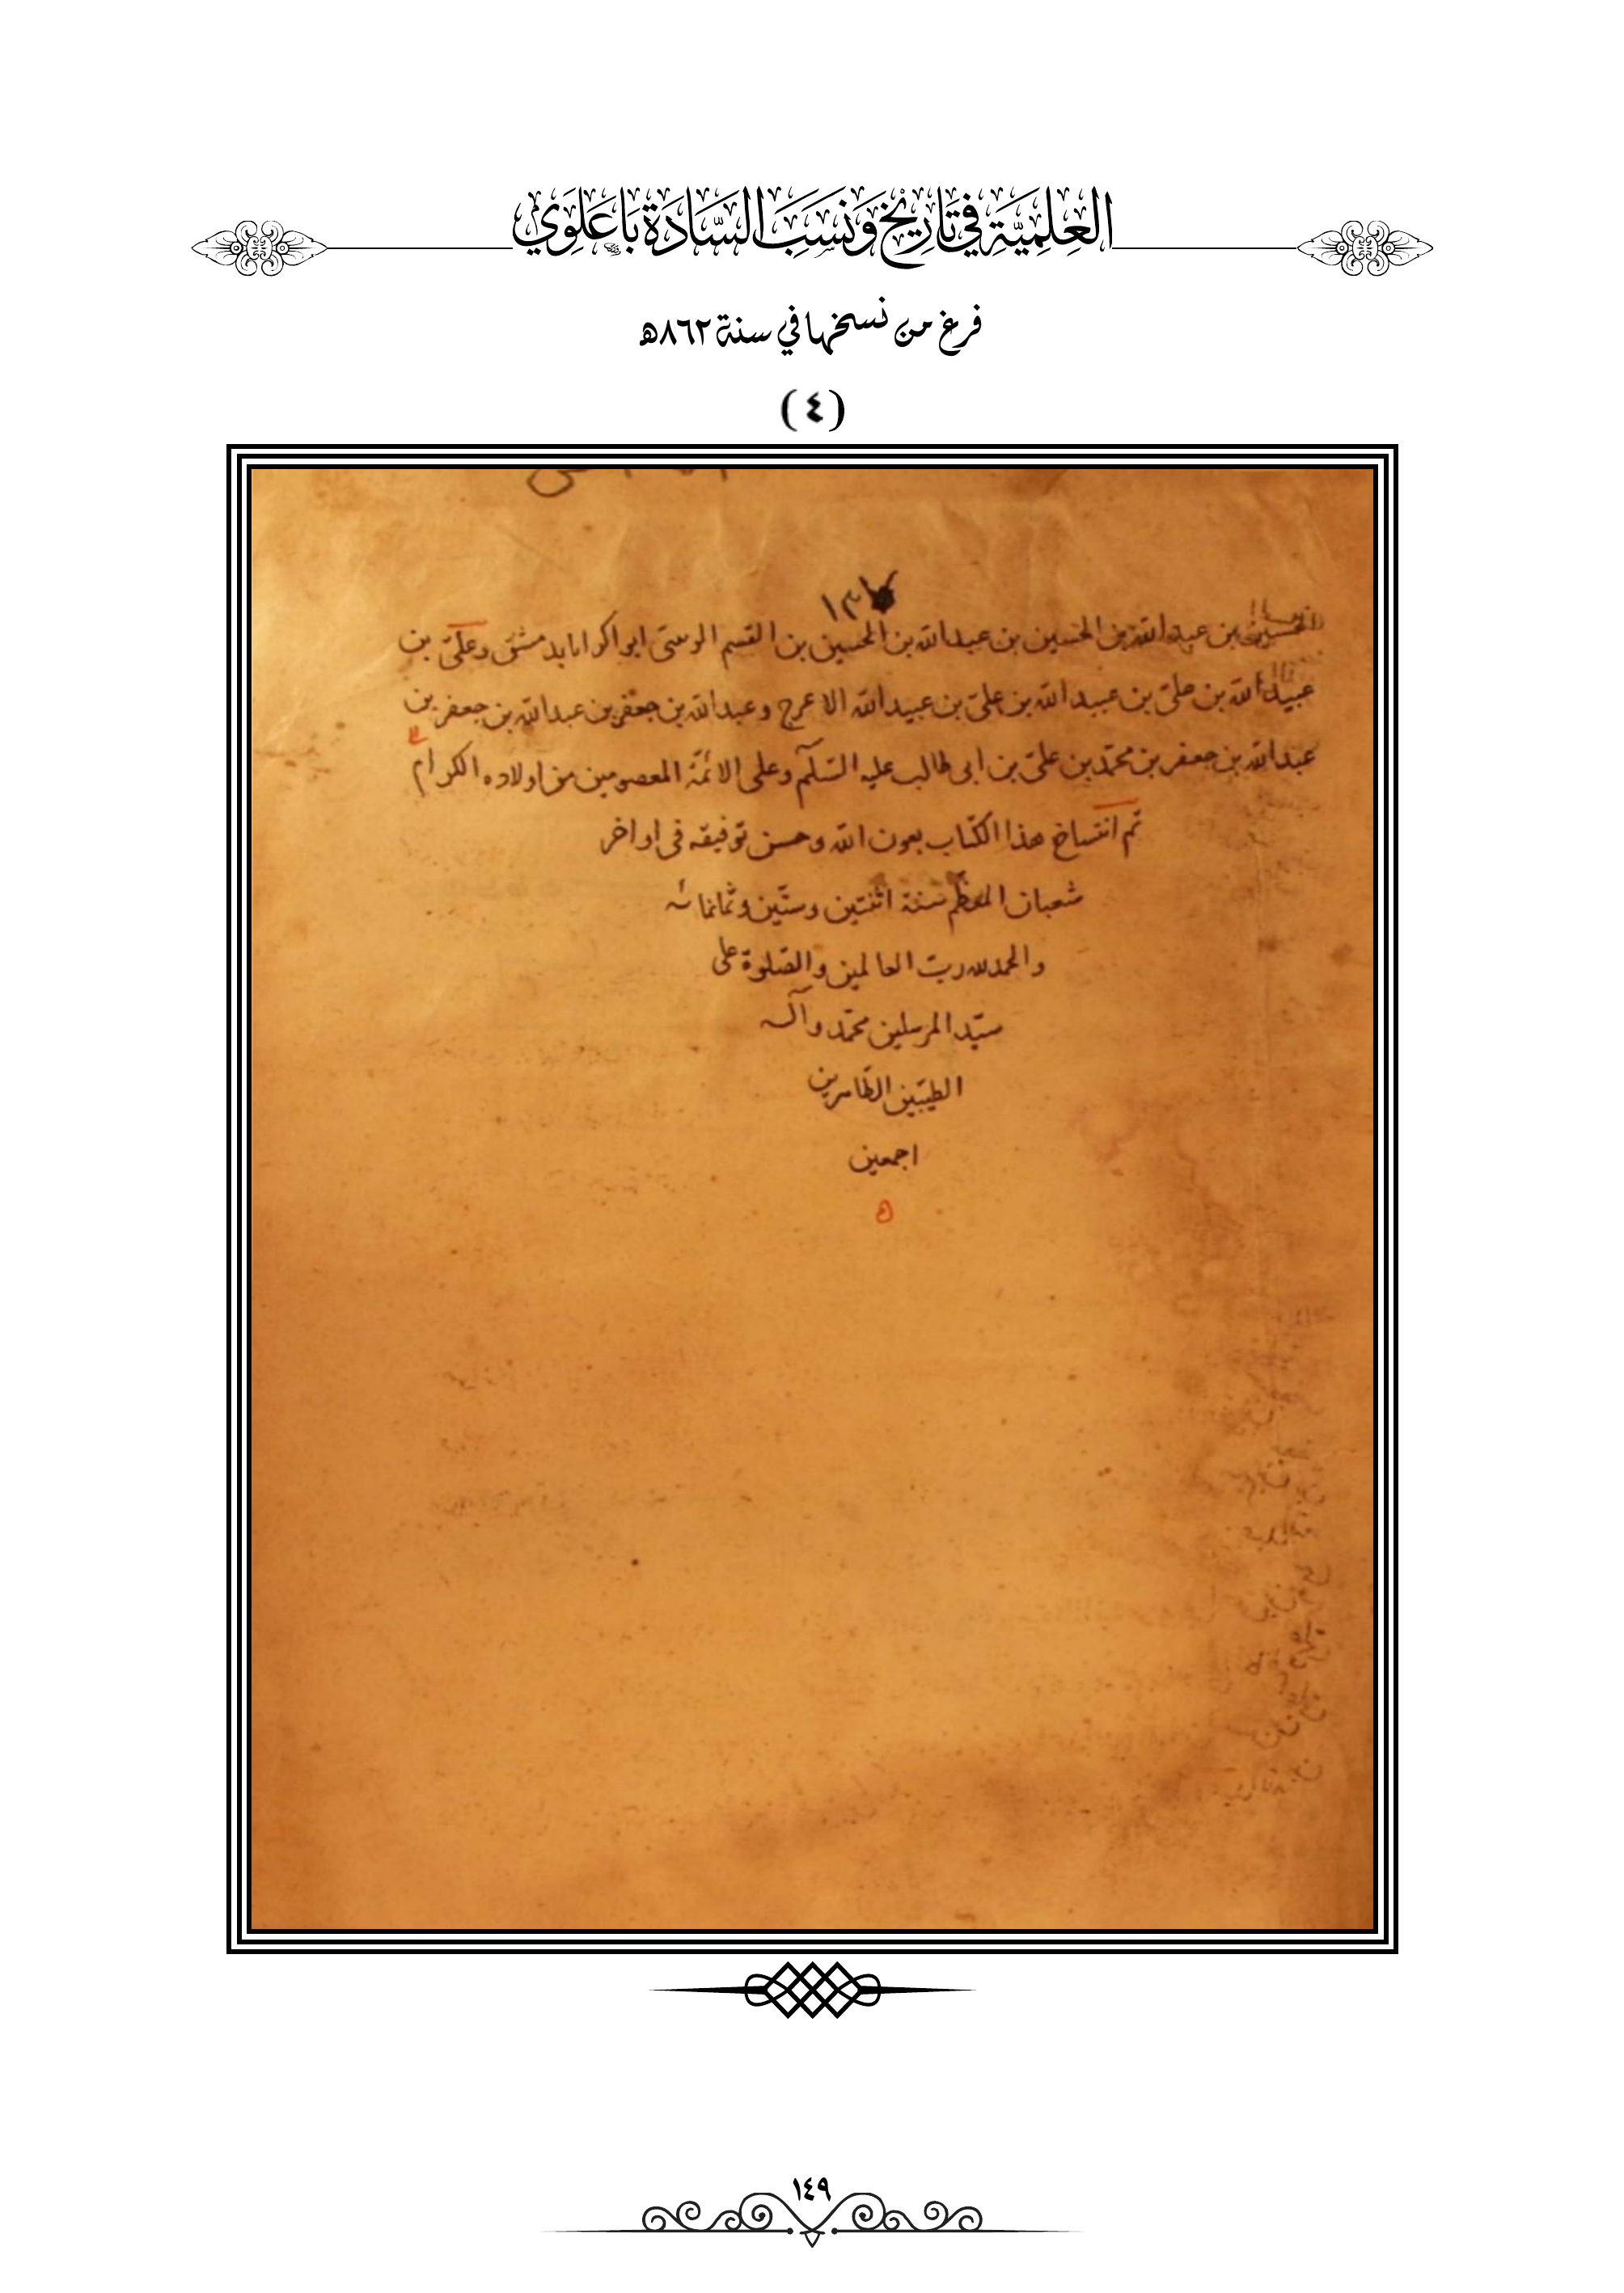 العِلمِيَّةِ فِي تَارِيْخِ وَنَسَبَ السَّادَة بَاعَلَوِي
فرغ من نسخها في سنة ٨٦٢هـ
(٤)
الحسين بن عبد الله بن الحسين بن عبد الله بن الحسين بن القسم الرسّى ابو اكرانا بد مشق وعلىّ بن
عبيد الله بن علىّ بن عبيد الله بن علىّ بن عبيد الله الاعرج وعبد الله بن جعفر بن عبد الله بن جعفر بن
عبد الله بن جعفر بن محمّد بن علىّ بن ابى طالب عليه السّلم وعلى الائمّة المعصومين من اولاده الكرام
تم انتساخ هذا الكتاب بعون الله وحسن توفيقه فى اواخر
شعبان المعظّم سنة اثنتين وستّين وثمانمائه
والحمد لله ربّ العالمين والصّلوة على
سيّد المرسلين محمّد وآله
الطيّبين الطّاهرين
اجمعين
١٤٩